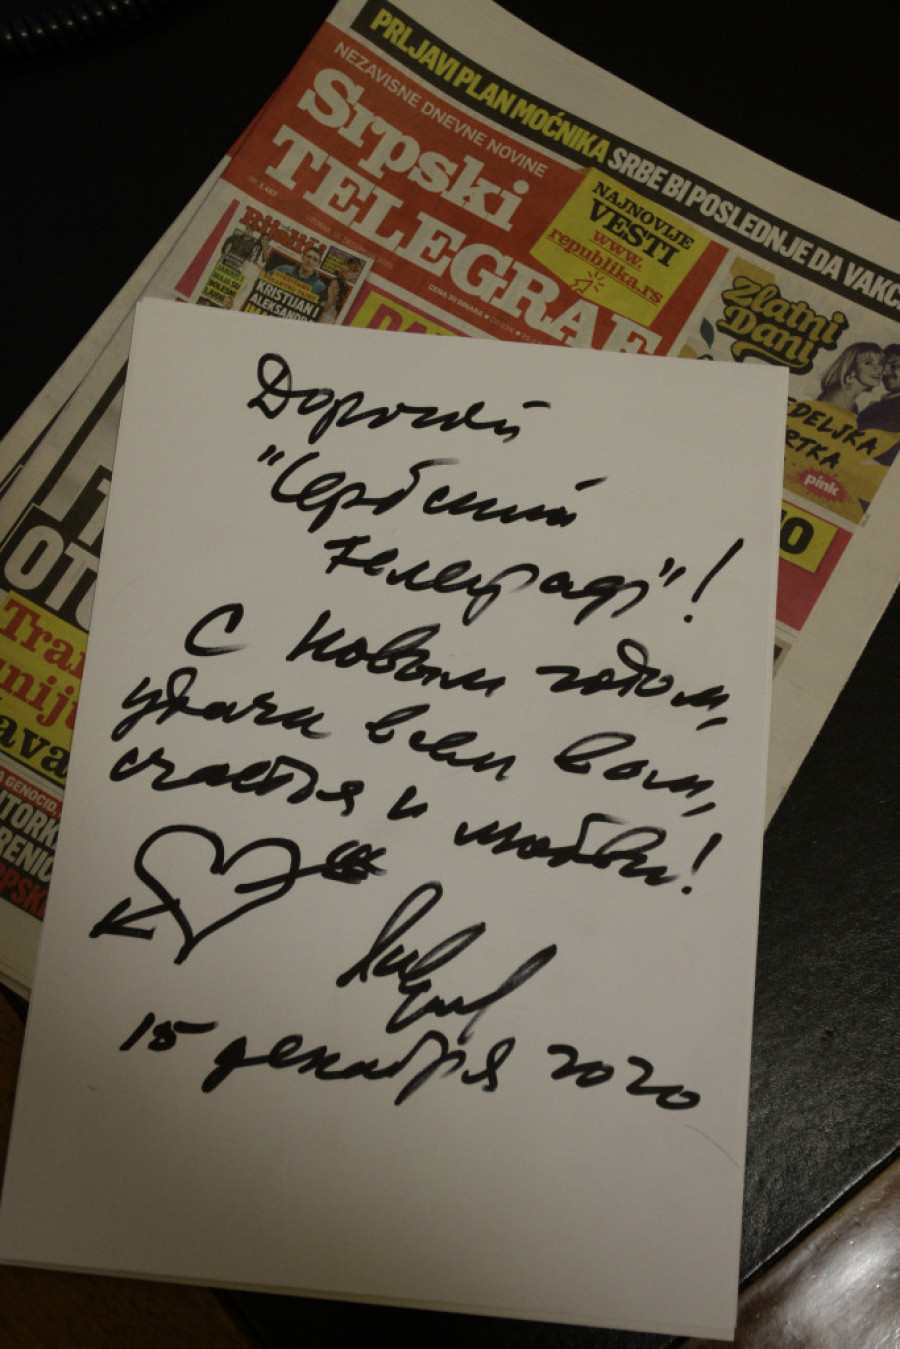 PRLJAVI PLAN MOĆNIKA SRBE BI POSLEDNJE DA VAKC
NEZAVISNE DNEVNE NOVINE
Srpski
TELEGRAF
NAJNOVIJE
VESTI
www.
republika.rs
Zlatni
Dani
KRISTIJAN I
ALEKSANDRA
EDELJKA
RTKA
pink
OTU
Дорогой
"Сербский
телеграф"!
С новым годом,
удачи всем вам,
счастья и любви!
15 декабря 2020